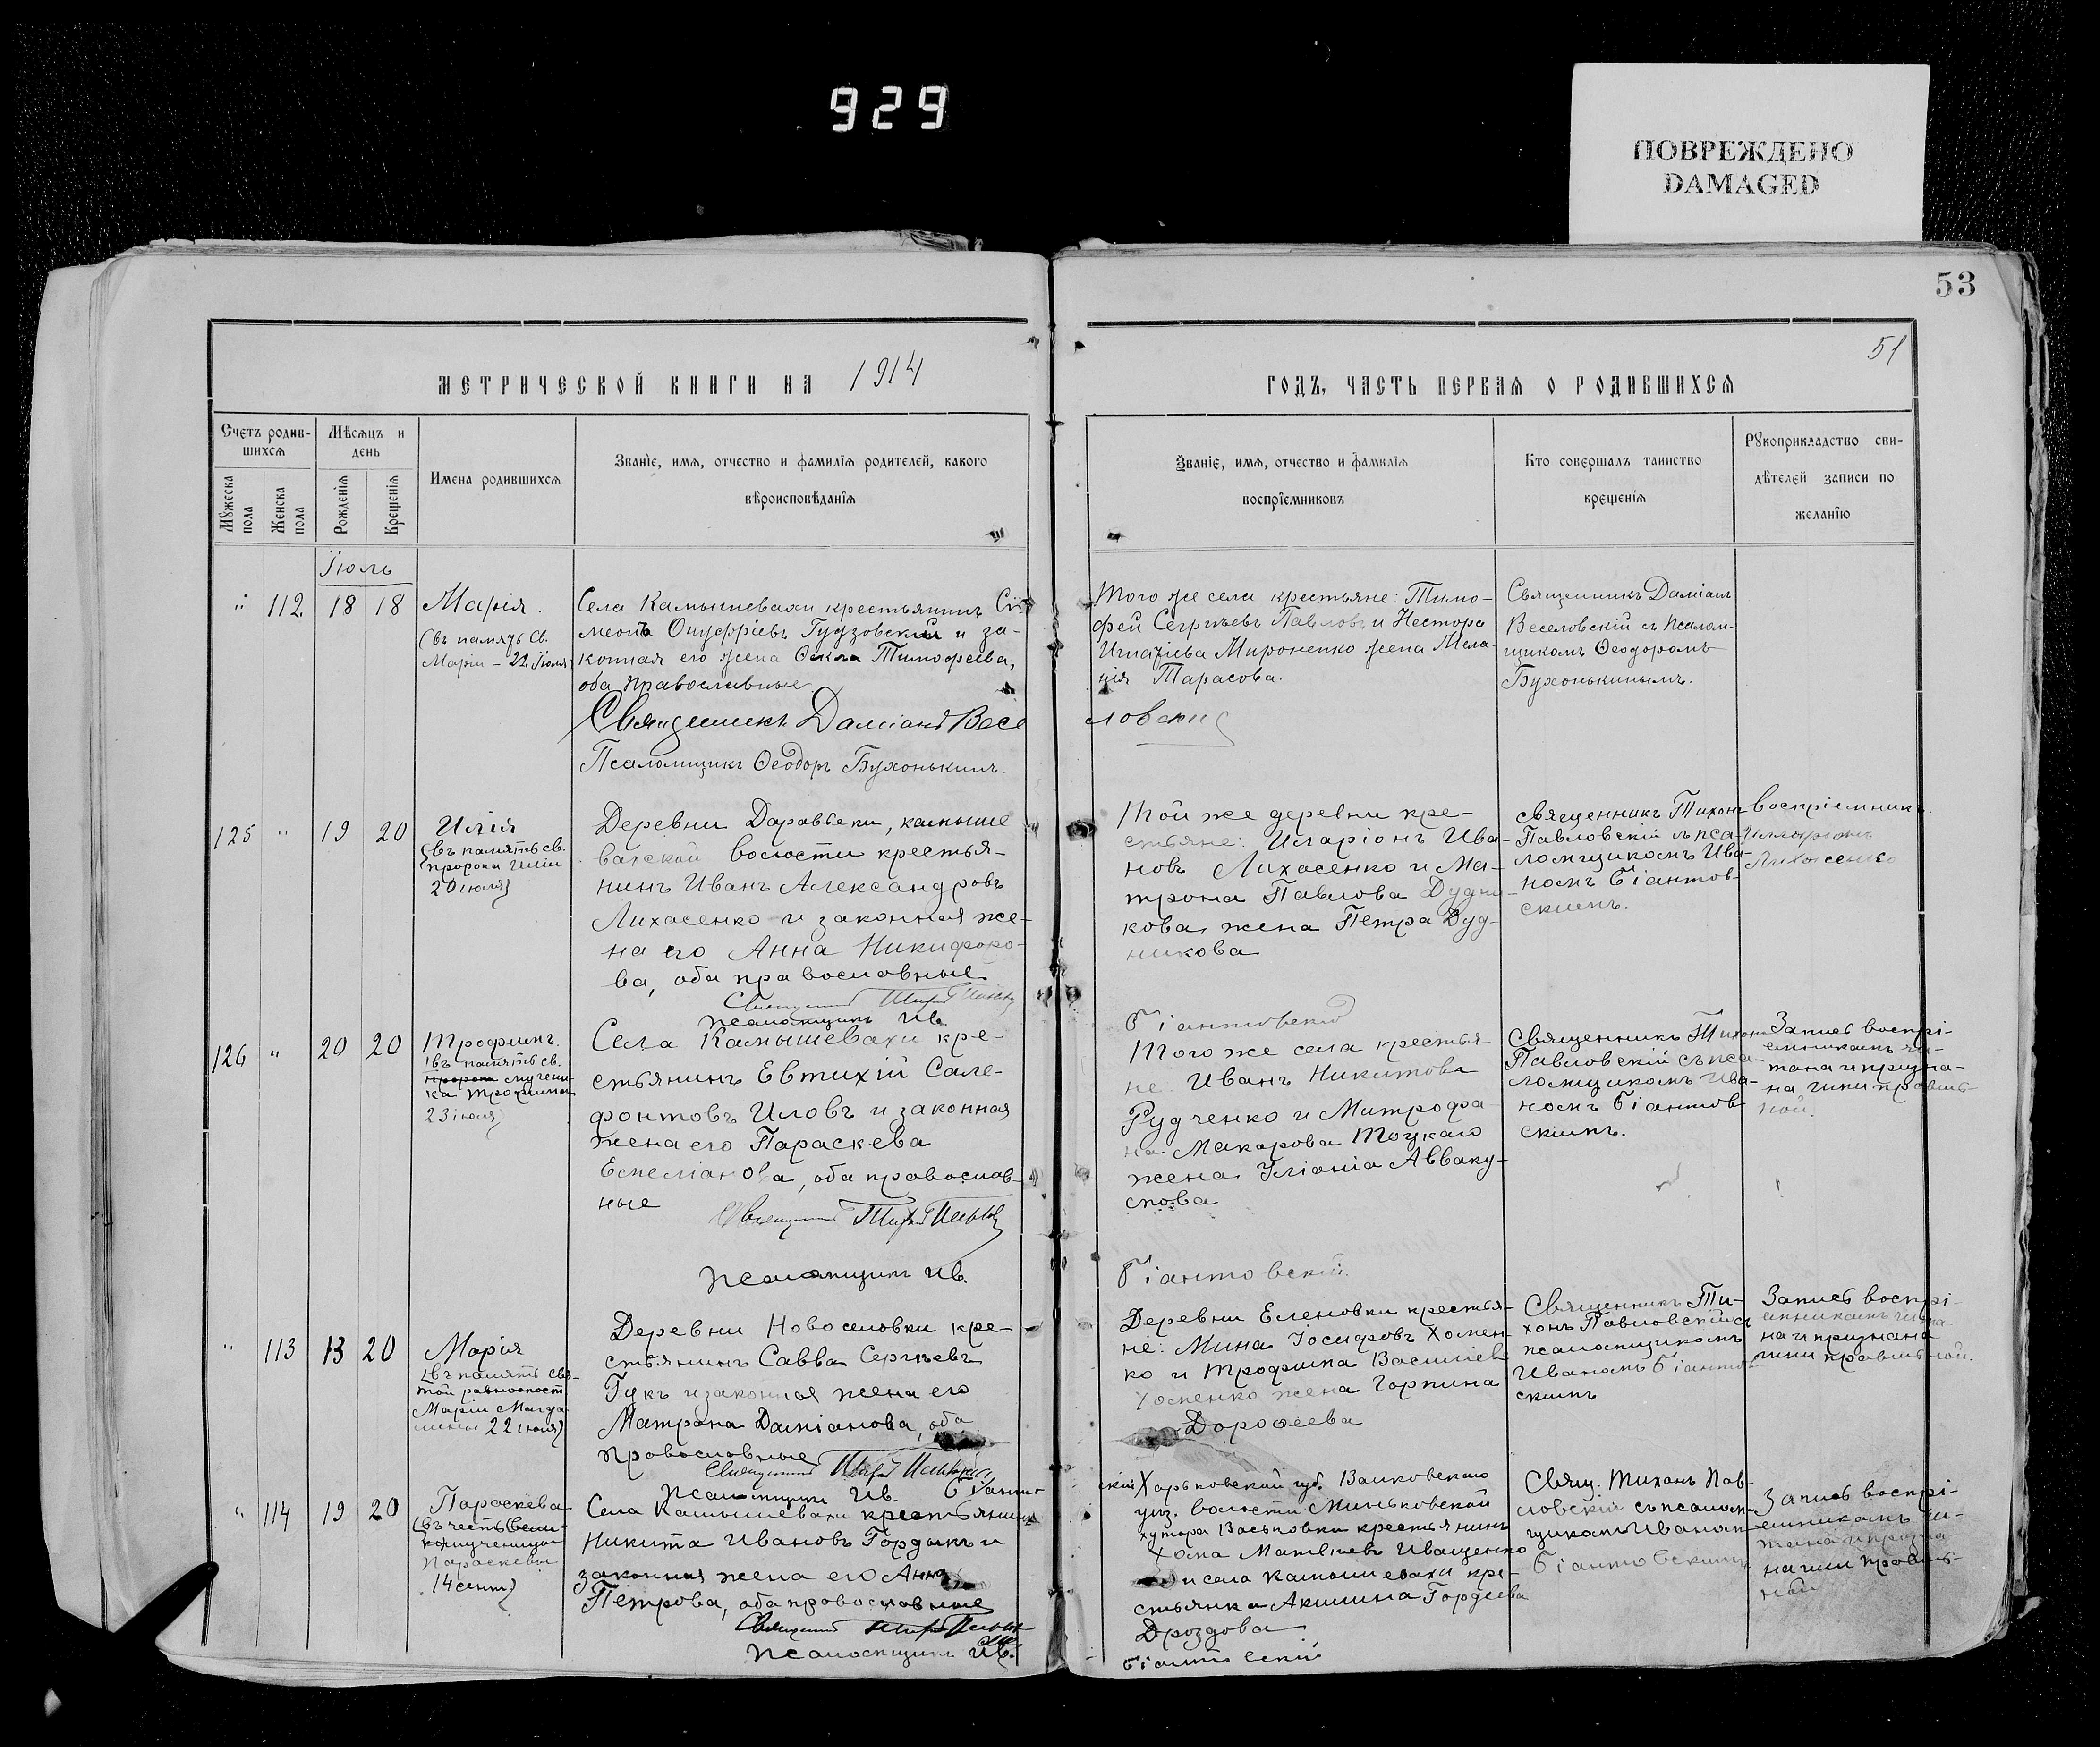 929
ПОВРЕЖДЕНО
DAMAGED
53
51
МЕТРИЧЕСКОЙ КНИГИ НА 1914
ГОДЪ, ЧАСТЬ ПЕРВАЯ О РОДИВШИХСЯ
Счетъ родив-
шихся
Мѣсяцъ и
день
Мужеска
пола
Женска
пола
Рожденія
Крещенія
Имена родившихся
Званіе, имя, отчество и фамилія родителей, какого
вѣроисповѣданія
Званіе, имя, отчество и фамилія
воспріемниковъ
Кто совершалъ таинство
крещенія
Рукоприкладство сви-
дѣтелей записи по
желанію
Іюль
" 112 18 18
Марія.
(въ память Св.
Маріи – 22 Іюля)
Села Камышевахи крестьянинъ Сѵ-
меонъ Онуфріевъ Гудзовскій и за-
конная его жена Ѳекла Тимофеева,
оба православные
Священникъ Даміанъ Весе
ловскій
Псаломщикъ Ѳеодоръ Бухонькинъ.
Того же села крестьяне: Тимо-
фей Сергѣевъ Павловъ и Нестора
Игнатіева Мироненко жена Мела-
нія Тарасова.
Священникъ Даміанъ
Веселовскій съ псалом-
щикомъ Ѳеодоромъ
Бухонькинымъ.
125 " 19 20
Илія
(въ память св.
пророка Иліи
20 іюля)
Деревни , камыше
ватской волости крестья-
нинъ Иванъ Александровъ
Лихасенко и законная же-
на его Анна Никифоро-
ва, оба православные
Священникъ
псаломщикъ Ив.
Біантовскій
Той же деревни кре-
стьяне: Иларіонъ Ива-
новъ Лихасенко и Ма-
трона Павлова Дудни-
кова жена Петра Дуд-
никова
священникъ Тихонъ
Павловскій съ пса-
ломщикомъ Ива-
номъ Біантов-
скимъ.
воспріемникъ
Иларіонъ
Лихасенко
126 " 20 20
Трофимъ.
(въ память св.
пророка мучени-
ка Трофима
23 іюля)
Села Камышевахи кре-
стьянинъ Евтихій Сале-
фонтовъ Иловъ и законная
жена его Параскева
Емеліанова, оба православ-
ные
Священникъ
псаломщикъ Ив.
Біантовскій.
Того же села крестья-
не Иванъ Никитовъ
Рудченко и Митрофа-
на Макарова Тоцкаго
жена Уліанія Авваку-
мова
Священникъ Тихонъ
Павловскій съ пса-
ломщикомъ Ива-
номъ Біантов-
скимъ.
Запись воспрі-
емникамъ чи-
тана и призна-
на ими правиль-
ной.
" 113 13 20
Марія
(въ память свя-
той равноапост
Маріи Магда-
лины 22 іюля)
Деревни Новоселовки кре-
стьянинъ Савва Сергѣевъ
Гукъ и законная жена его
Матрона Даміанова, оба
православные
Священникъ
псаломщикъ Ив. Біантов
скій
Деревни Еленовки крестья-
не: Мина Іосифовъ Хомен-
ко и Трофима Василіева
Хоменко жена Горпина
Дорофеева
Священникъ Ти-
хонъ Павловскій съ
псаломщикомъ
Иваномъ Біантов
скимъ
Запись воспрі-
емникамъ чита
на и признана
ими правильной.
" 114 19 20
Параскева
(въ честь вели-
комученицы
Параскевы
14 сент)
Села Камышевахи крестьянинъ
Никита Ивановъ Гордыкъ и
законная жена его Анна
Петрова, оба православные
Священникъ
псаломщикъ Ив.
Біантовскій
Харьковской губ. Валковскаго
уѣз. волости Миньковской
хутора Васьковки крестьянинъ
Хома Матвѣевъ Иващенко
и села Камышевахи кре-
стьянка Акилина Гордеева
Дроздова
Свящ. Тихонъ Пав-
ловскій съ псалом-
щикомъ Иваномъ
Біантовскимъ
Запись воспрі-
емникамъ чи-
тана и призна
на ими правиль-
ной